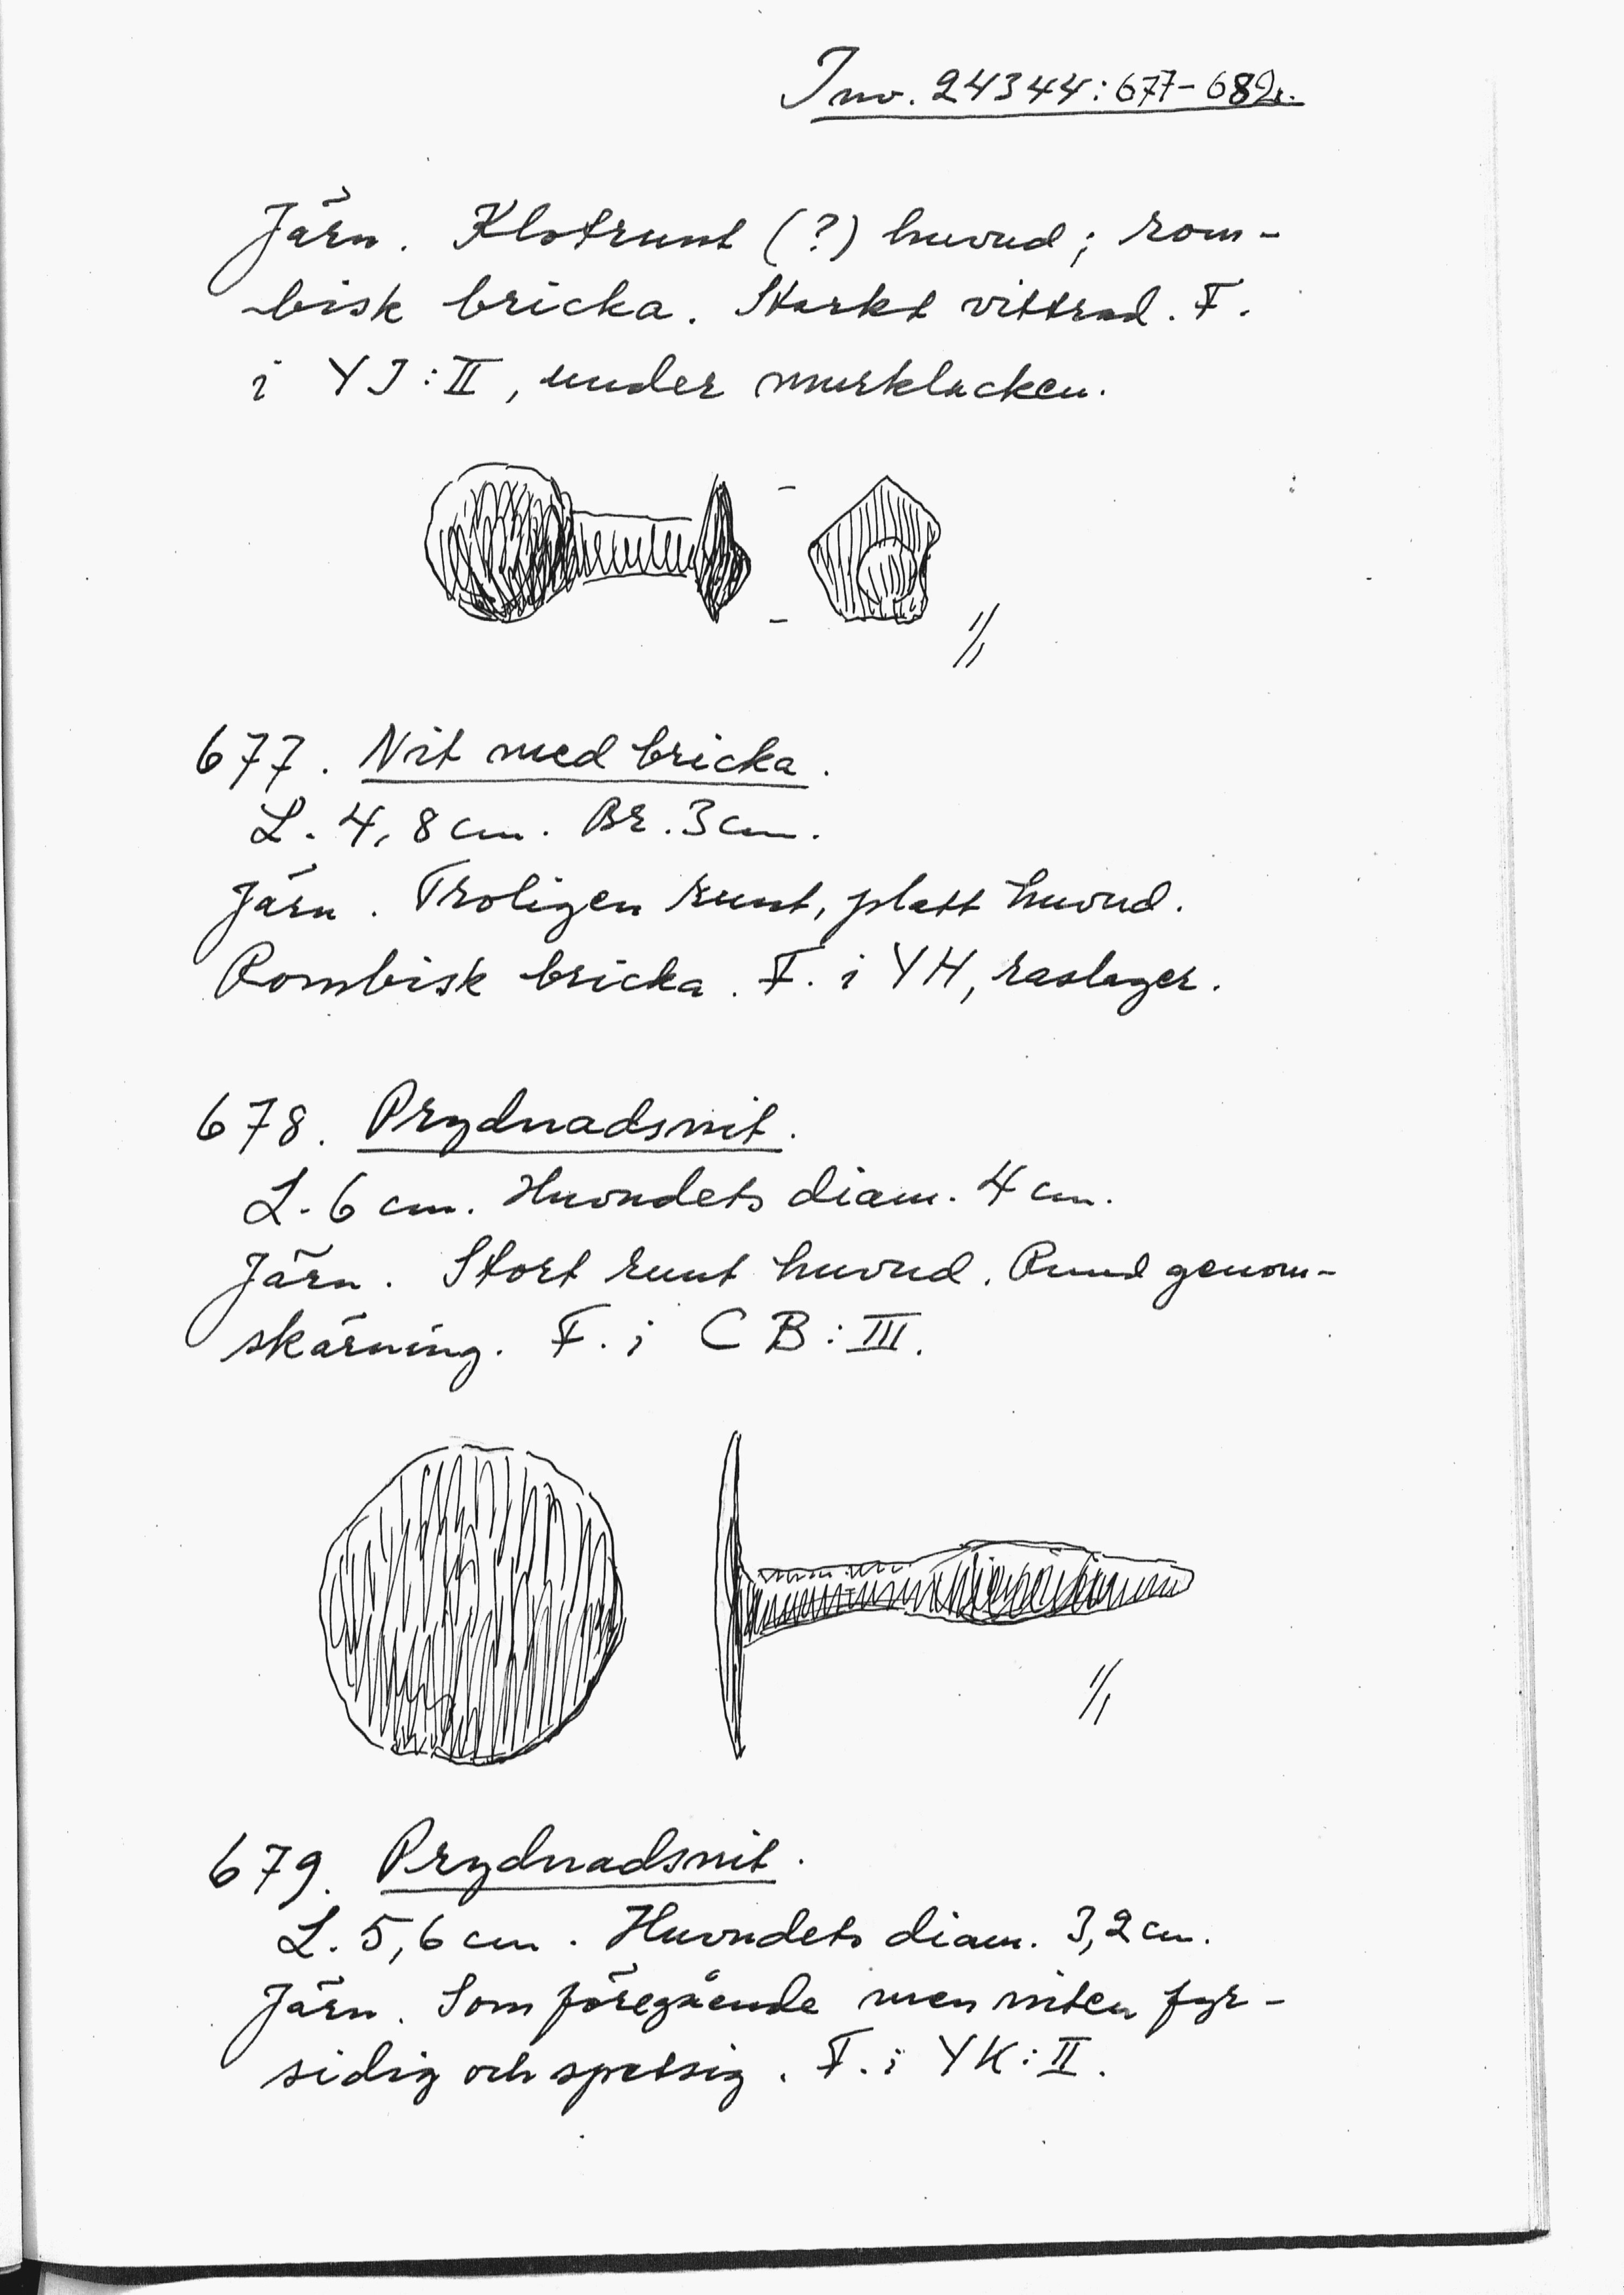 Inv. 24344:677-682.
Järn. Klotrunt (?) huvud; rom-
bisk bricka. Starkt vittrad. F.
i YJ:II, under murklacken.
1/1
677. Nit med bricka.
L. 4,8 cm. Br. 3 cm.
Järn. Troligen runt, platt huvud.
Rombisk bricka. F. i YH, raslager.
678. Prydnadsnit.
L. 6 cm. Huvudets diam. 4 cm.
Järn. Stort runt huvud. Rund genom-
skärning. F. i CB:III.
1/1
679. Prydnadsnit.
L. 5,6 cm. Huvudets diam. 3,2 cm.
Järn. Som föregående men niten fyr-
sidig och spetsig. F. i YK:II.